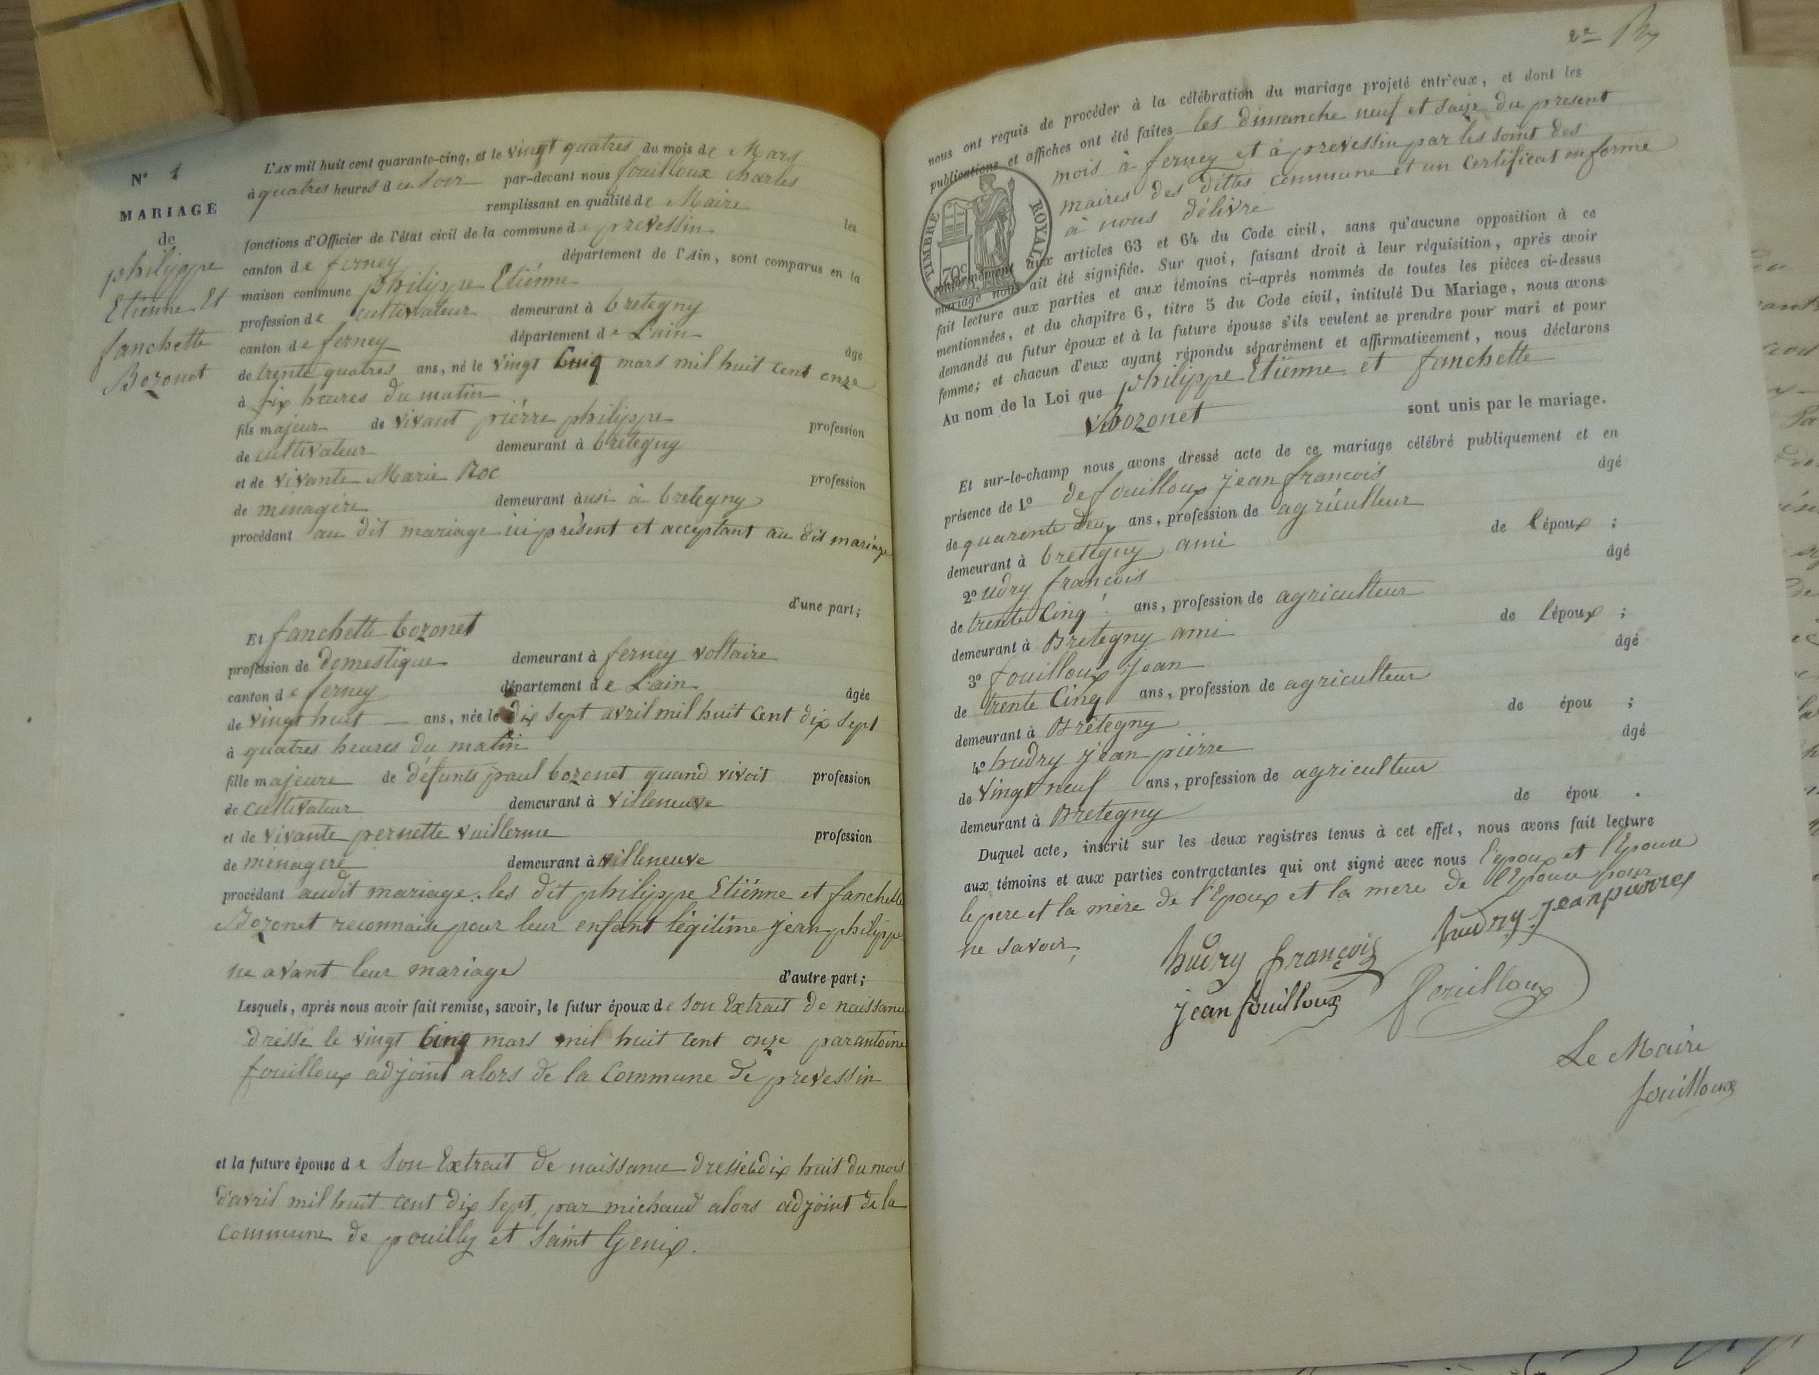 N° 1
MARIAGE
de
philippe
Etienne Et
fanchette
Bozonet
L'AN mil huit cent quarante-cinq, et le vingt quatres du mois de Mars
à quatres heures du Soir par-devant nous fouilloux charles
remplissant en qualité de Maire les
fonctions d'Officier de l'état civil de la commune de prevessin
canton de ferney département de l'Ain, sont comparus en la
maison commune philippe Etiénne
profession de cultivateur demeurant à bretegny
canton de ferney département de L'ain âgé
de trente quatres ans, né le vingt Cinq mars mil huit cent onze
à six heures du matin
fils majeur de vivant piérre philippe profession
de cultivateur demeurant à bretegny
et de vivante Marie Roc profession
de ménagère demeurant ausi à bretegny
procédant au dit mariage ici présent et acceptant au dit mariage
d'une part;
Et fanchette bozonet
profession de domestique demeurant à ferney voltaire
canton de ferney département de L'ain âgée
de vingt huit ans, née le dix sept avril mil huit cent dix sept
à quatres heures du matin
fille majeure de défunts paul bozonet quand vivoit profession
de cultivateur demeurant à villeneuve
et de vivante pernette vuillerme profession
de ménagère demeurant à villeneuve
procédant audit mariage. les dit philippe Etiénne et fanchette
Bozonet reconnaise pour leur enfant légitime jean philippe
ne avant leur mariage d'autre part;
Lesquels, après nous avoir fait remise, savoir, le futur époux de Son Extrait de naissance
dressé le vingt Cinq mars mil huit cent onze par antoine
fouilloux adjoint alors de la Commune de prevessin
et la future épouse de Son Extrait de naissance dressé le dix huit du mois
d'avril mil huit cent dix sept, par michaud alors adjoint de la
commune de pouilly et Saint Genix.
2e
nous ont requis de procéder à la célébration du mariage projeté entr'eux, et dont les
publications et affiches ont été faites les dimanche neuf et Saize du present
mois à ferney et à prevessin par les soint des
maires des dittes commune et un Certificat en forme
à nous délivre
TIMBRE ROYAL
70c
conformément aux articles 63 et 64 du Code civil, sans qu'aucune opposition à ce
mariage nous ait été signifiée. Sur quoi, faisant droit à leur réquisition, après avoir
fait lecture aux parties et aux témoins ci-après nommés de toutes les pièces ci-dessus
mentionnées, et du chapitre 6, titre 5 du Code civil, intitulé Du Mariage, nous avons
demandé au futur époux et à la future épouse s'ils veulent se prendre pour mari et pour
femme; et chacun d'eux ayant répondu séparément et affirmativement, nous déclarons
Au nom de la Loi que philippe Etiénne et fanchette
Bozonet sont unis par le mariage.
Et sur-le-champ nous avons dressé acte de ce mariage célébré publiquement et en
présence de 1° de fouilloux jean francois âgé
de quarente deux ans, profession de agriculteur
demeurant à bretegny ami de l'époux ;
2° udry francois âgé
de trente Cinq ans, profession de agriculteur
demeurant à Bretegny ami de l'époux ;
3° fouilloux jean âgé
de trente Cinq ans, profession de agriculteur
demeurant à Bretegny de épou ;
4° hudry jean piérre âgé
de vingt neuf ans, profession de agriculteur
demeurant à Bretegny de épou .
Duquel acte, inscrit sur les deux registres tenus à cet effet, nous avons fait lecture
aux témoins et aux parties contractantes qui ont signé avec nous l'epoux et l'Epouse
le pere et la mère de l'Epoux et la mere de l'Epouse pour
ne savoir,
hudry françois hudry jean pierre
jean fouilloux fouilloux
Le Maire
fouilloux